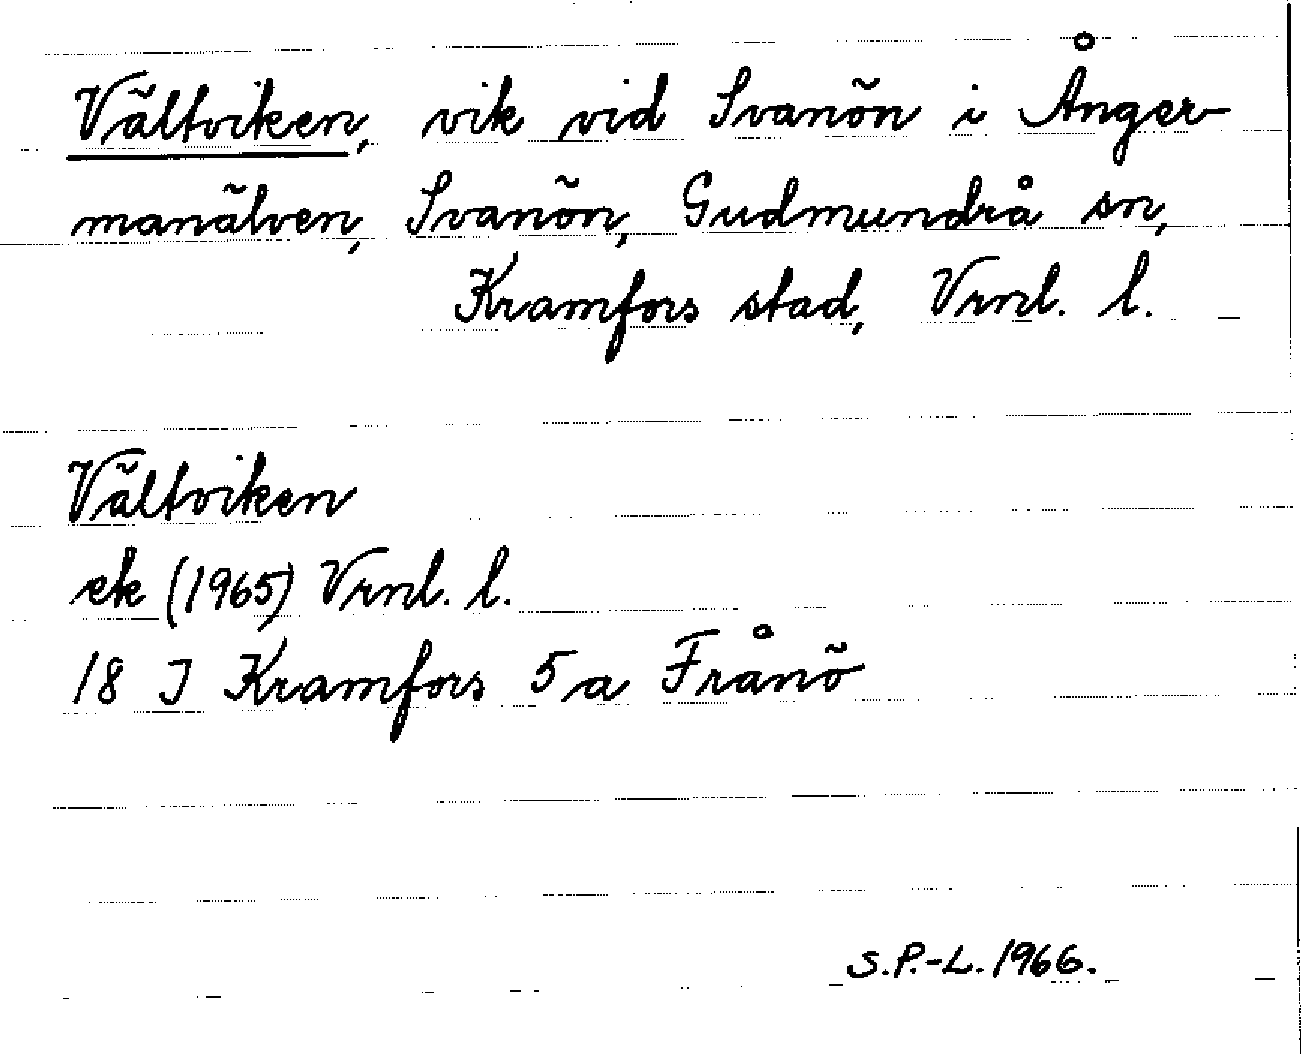 Vältviken, vik vid Svanön i Ånger-
manälven, Svanön, Gudmundrå sn,
Kramfors stad, Vrnl. l.
Vältviken
ek (1965) Vrnl. l.
18 J Kramfors 5 a Frånö
S.P.-L. 1966.